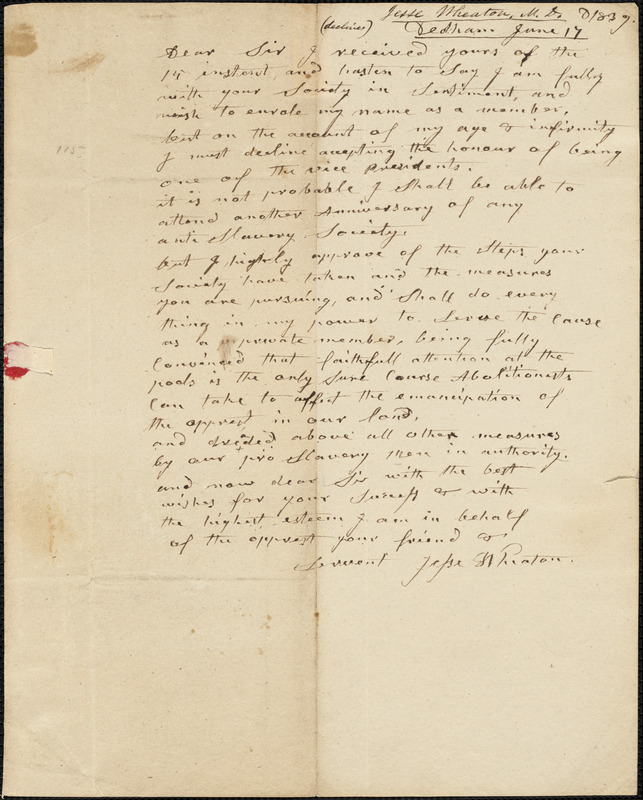 Jesse Wheaton, M. D.
(declines) Dedham June 17 1839.
Dear Sir I received yours of the
14 instent, and hasten to Say I am fully
with your Society in Sentiment, and
wish to enrole my name as a member,
but on the account of my age & infirmity
I must decline axepting the honour of being
one of the vice Presidents.
it is not probable I Shall be able to
attend another Anniversary of any
anti Slavery Society,
but I highly approve of the Steps your
Society have taken and the measures
you are pursuing, and Shall do every
thing in my power to Serve the Cause
as a private member, being fully
Convinced that faithfull attention at the
pools is the only Sure Course Abolitionists
Can take to affect the emancipation of
the opprest in our land,
and dreded above all other measures
by our pro Slavery men in authority.
and now dear Sir with the best
wishes for your Success & with
the highest esteem I am in behalf
of the opprest your friend &
Servent Jesse Wheaton.
115